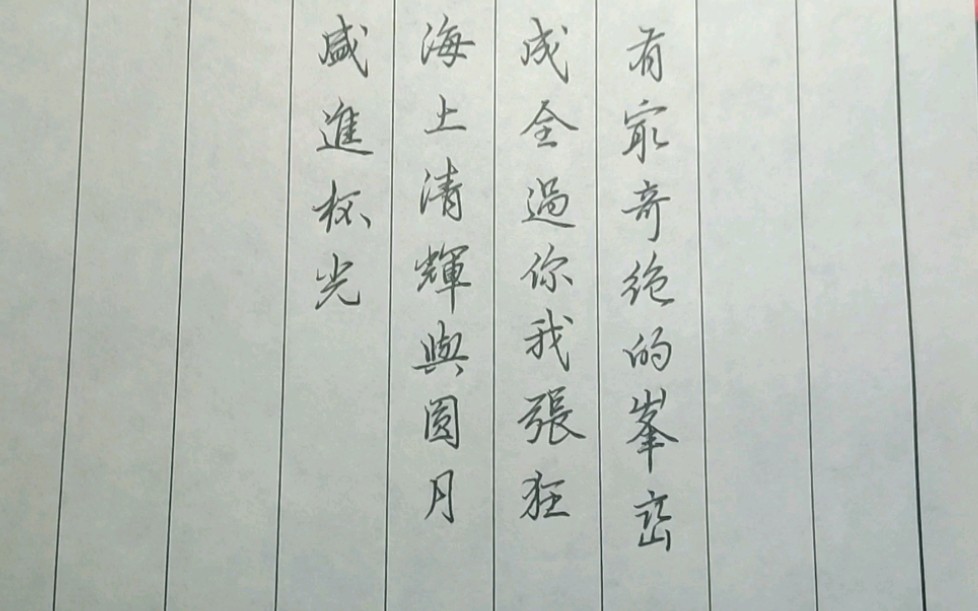 有最奇绝的峯峦
成全過你我張狂
海上清輝與圆月
盛進杯光